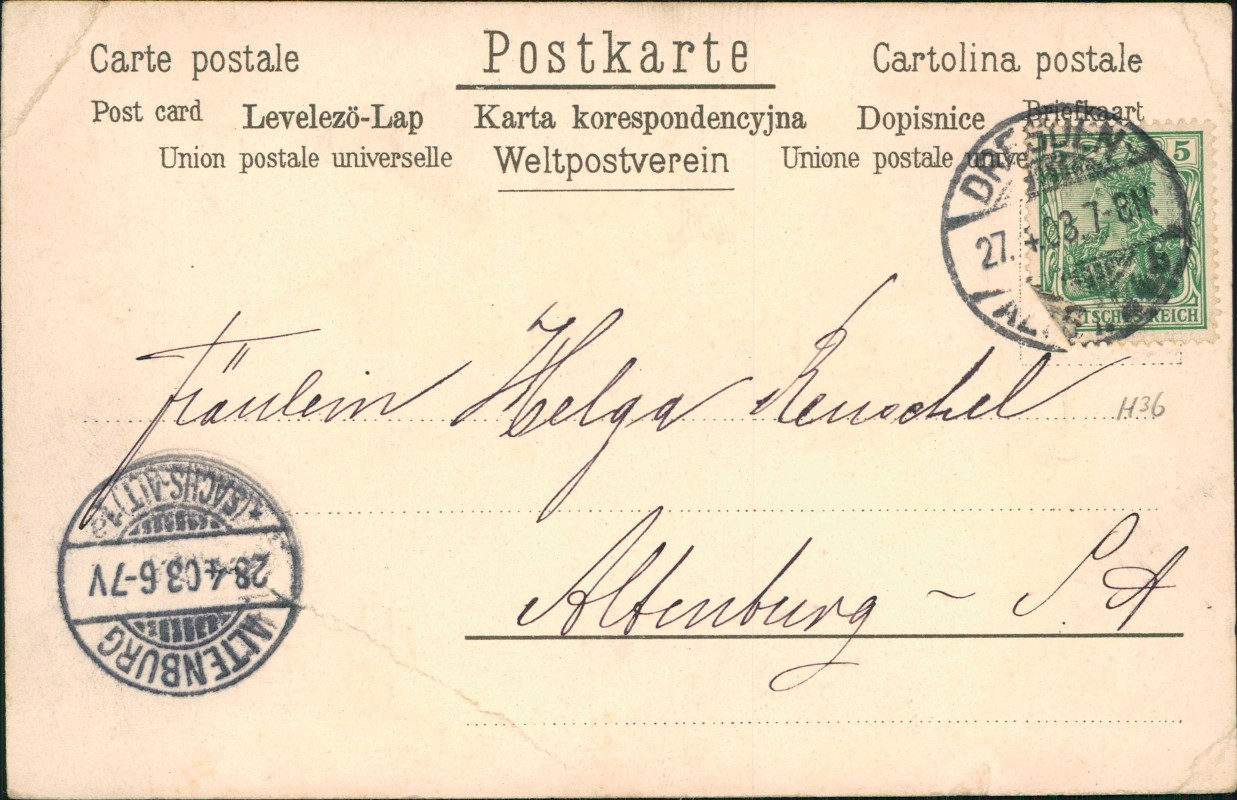 Carte postale Postkarte Cartolina postale
Post card Levelezö-Lap Karta korespondencyjna Dopisnice Briefkaart
Union postale universelle Weltpostverein Unione postale unive
5
DRESDEN
27. 4.03. 7-8N.
ALTST.
TSCHES REICH
Fräulein Helga Reuschel
H36
(SACHS-ALT) a
28.4.03 6-7V
ALTENBURG
Altenburg - S A